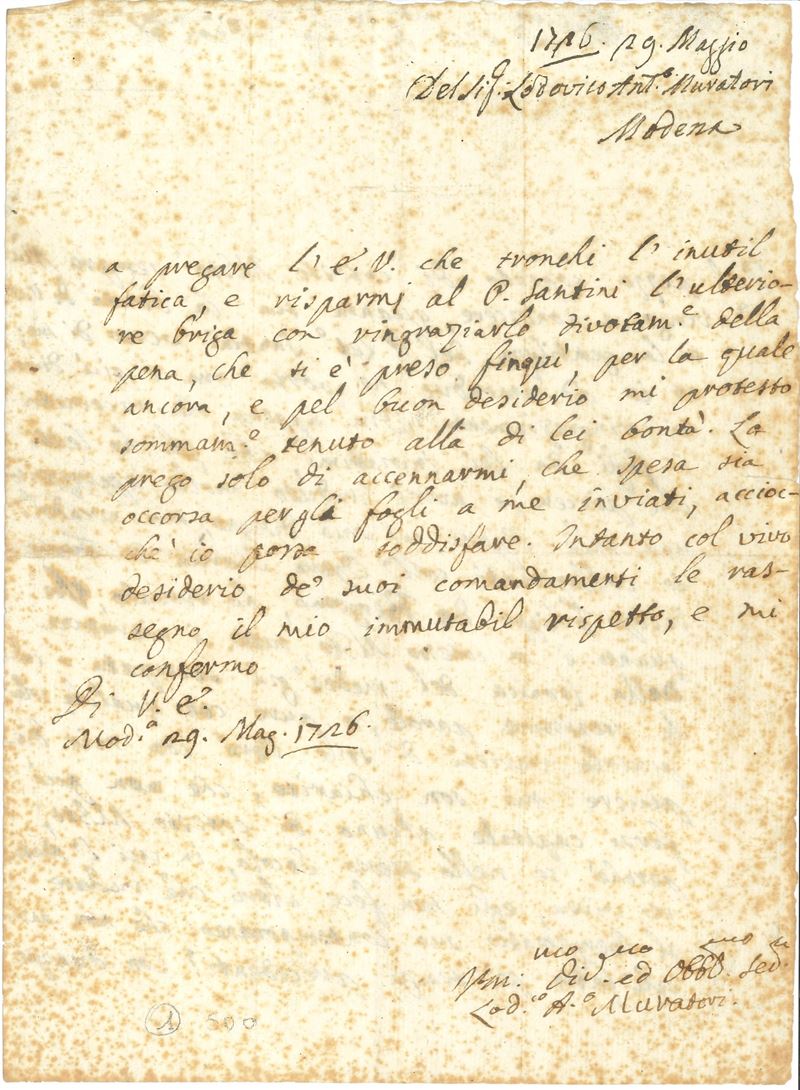 1726. 29. Maggio
Del Sig.r Lodovico Ant.o Muratori
Modena
a pregare l' E. V. che tronchi l' inutil
fatica, e risparmj al P. Santini l'ulterio-
re briga con ringraziarlo divotam.e della
pena, che si è preso finquì, per la quale
ancora, e pel buon desiderio mi protesto
sommam.e tenuto alla di lei bontà. La
prego solo di accennarmi, che spesa sia
occorsa per gli fogli a me inviati, accioc-
chè io possa soddisfare. Intanto col vivo
desiderio de' suoi comandamenti le ras-
segno il mio immutabil rispetto, e mi
confermo
Di V. E.
Mod.a 29. Mag. 1726.
Um:mo Div.mo ed Obbl.mo Ser.
Lod.co A.o Muratori.
1 500